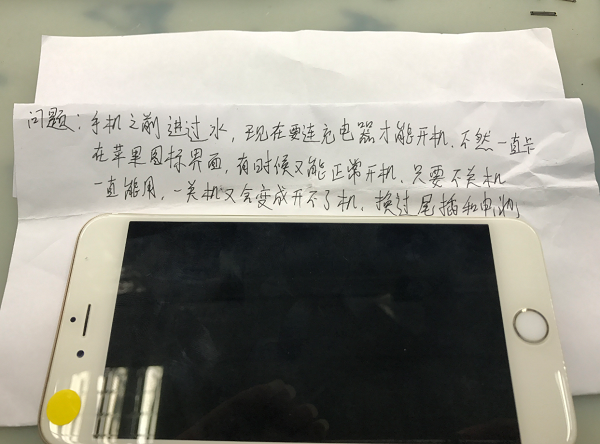 问题:手机之前进过水,现在要连充电器才能开机.不然一直卡
在苹果图标界面,有时候又能正常开机.只要不关机
一直能用,一关机又会变成开不了机,换过尾插和电池